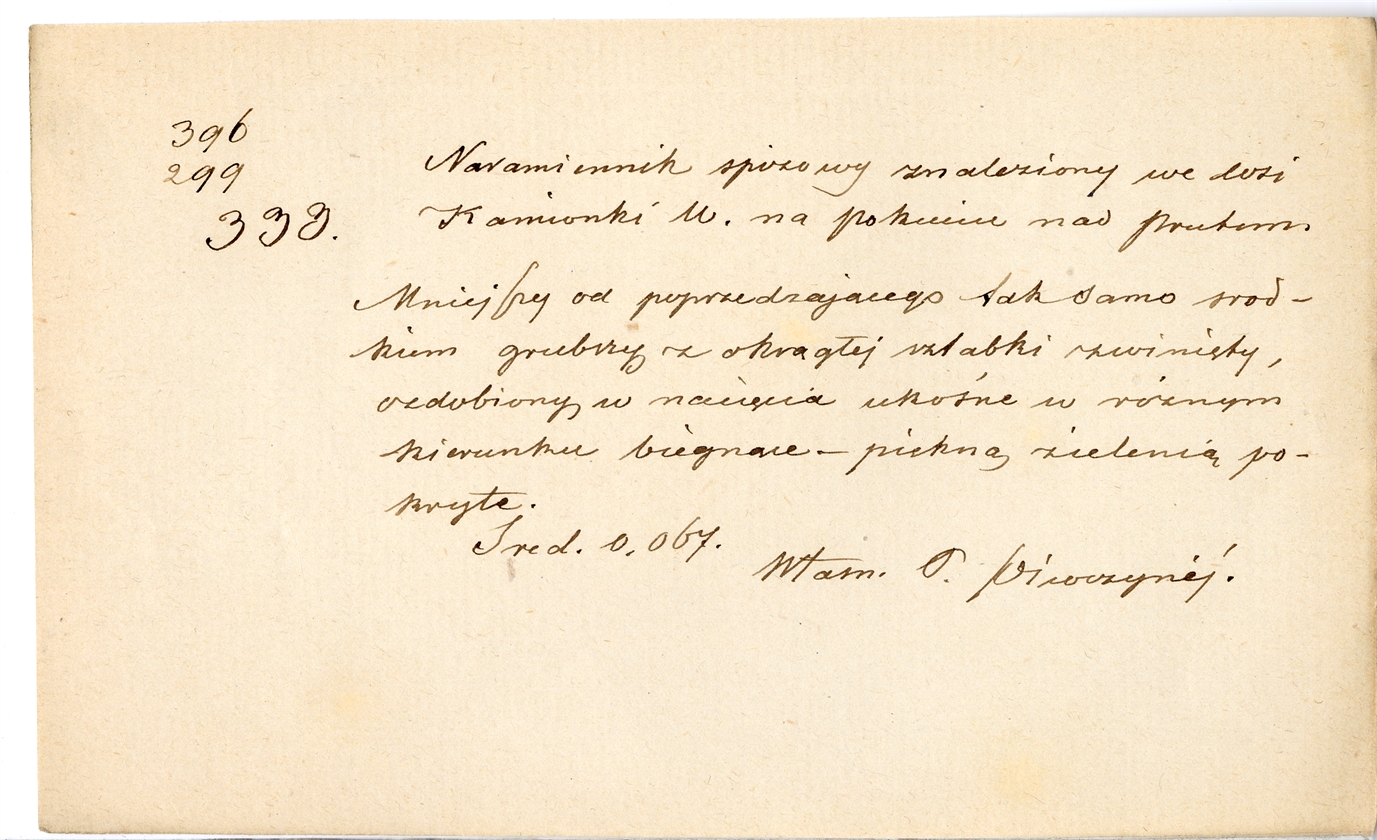 396
299
333.
Naramiennik spiżowy znaleziony we wsi
Kamionki W. na pokuciu nad Prutem.
Mniejszy od poprzedzającego tak samo środ-
kiem grubszy z okrągłej sztabki zwinięty,
ozdobiony w nacięcia ukośne w różnym
kierunku biegnące – piekną zielenią po-
kryte.
Śred. 0,067.
Własn. P.